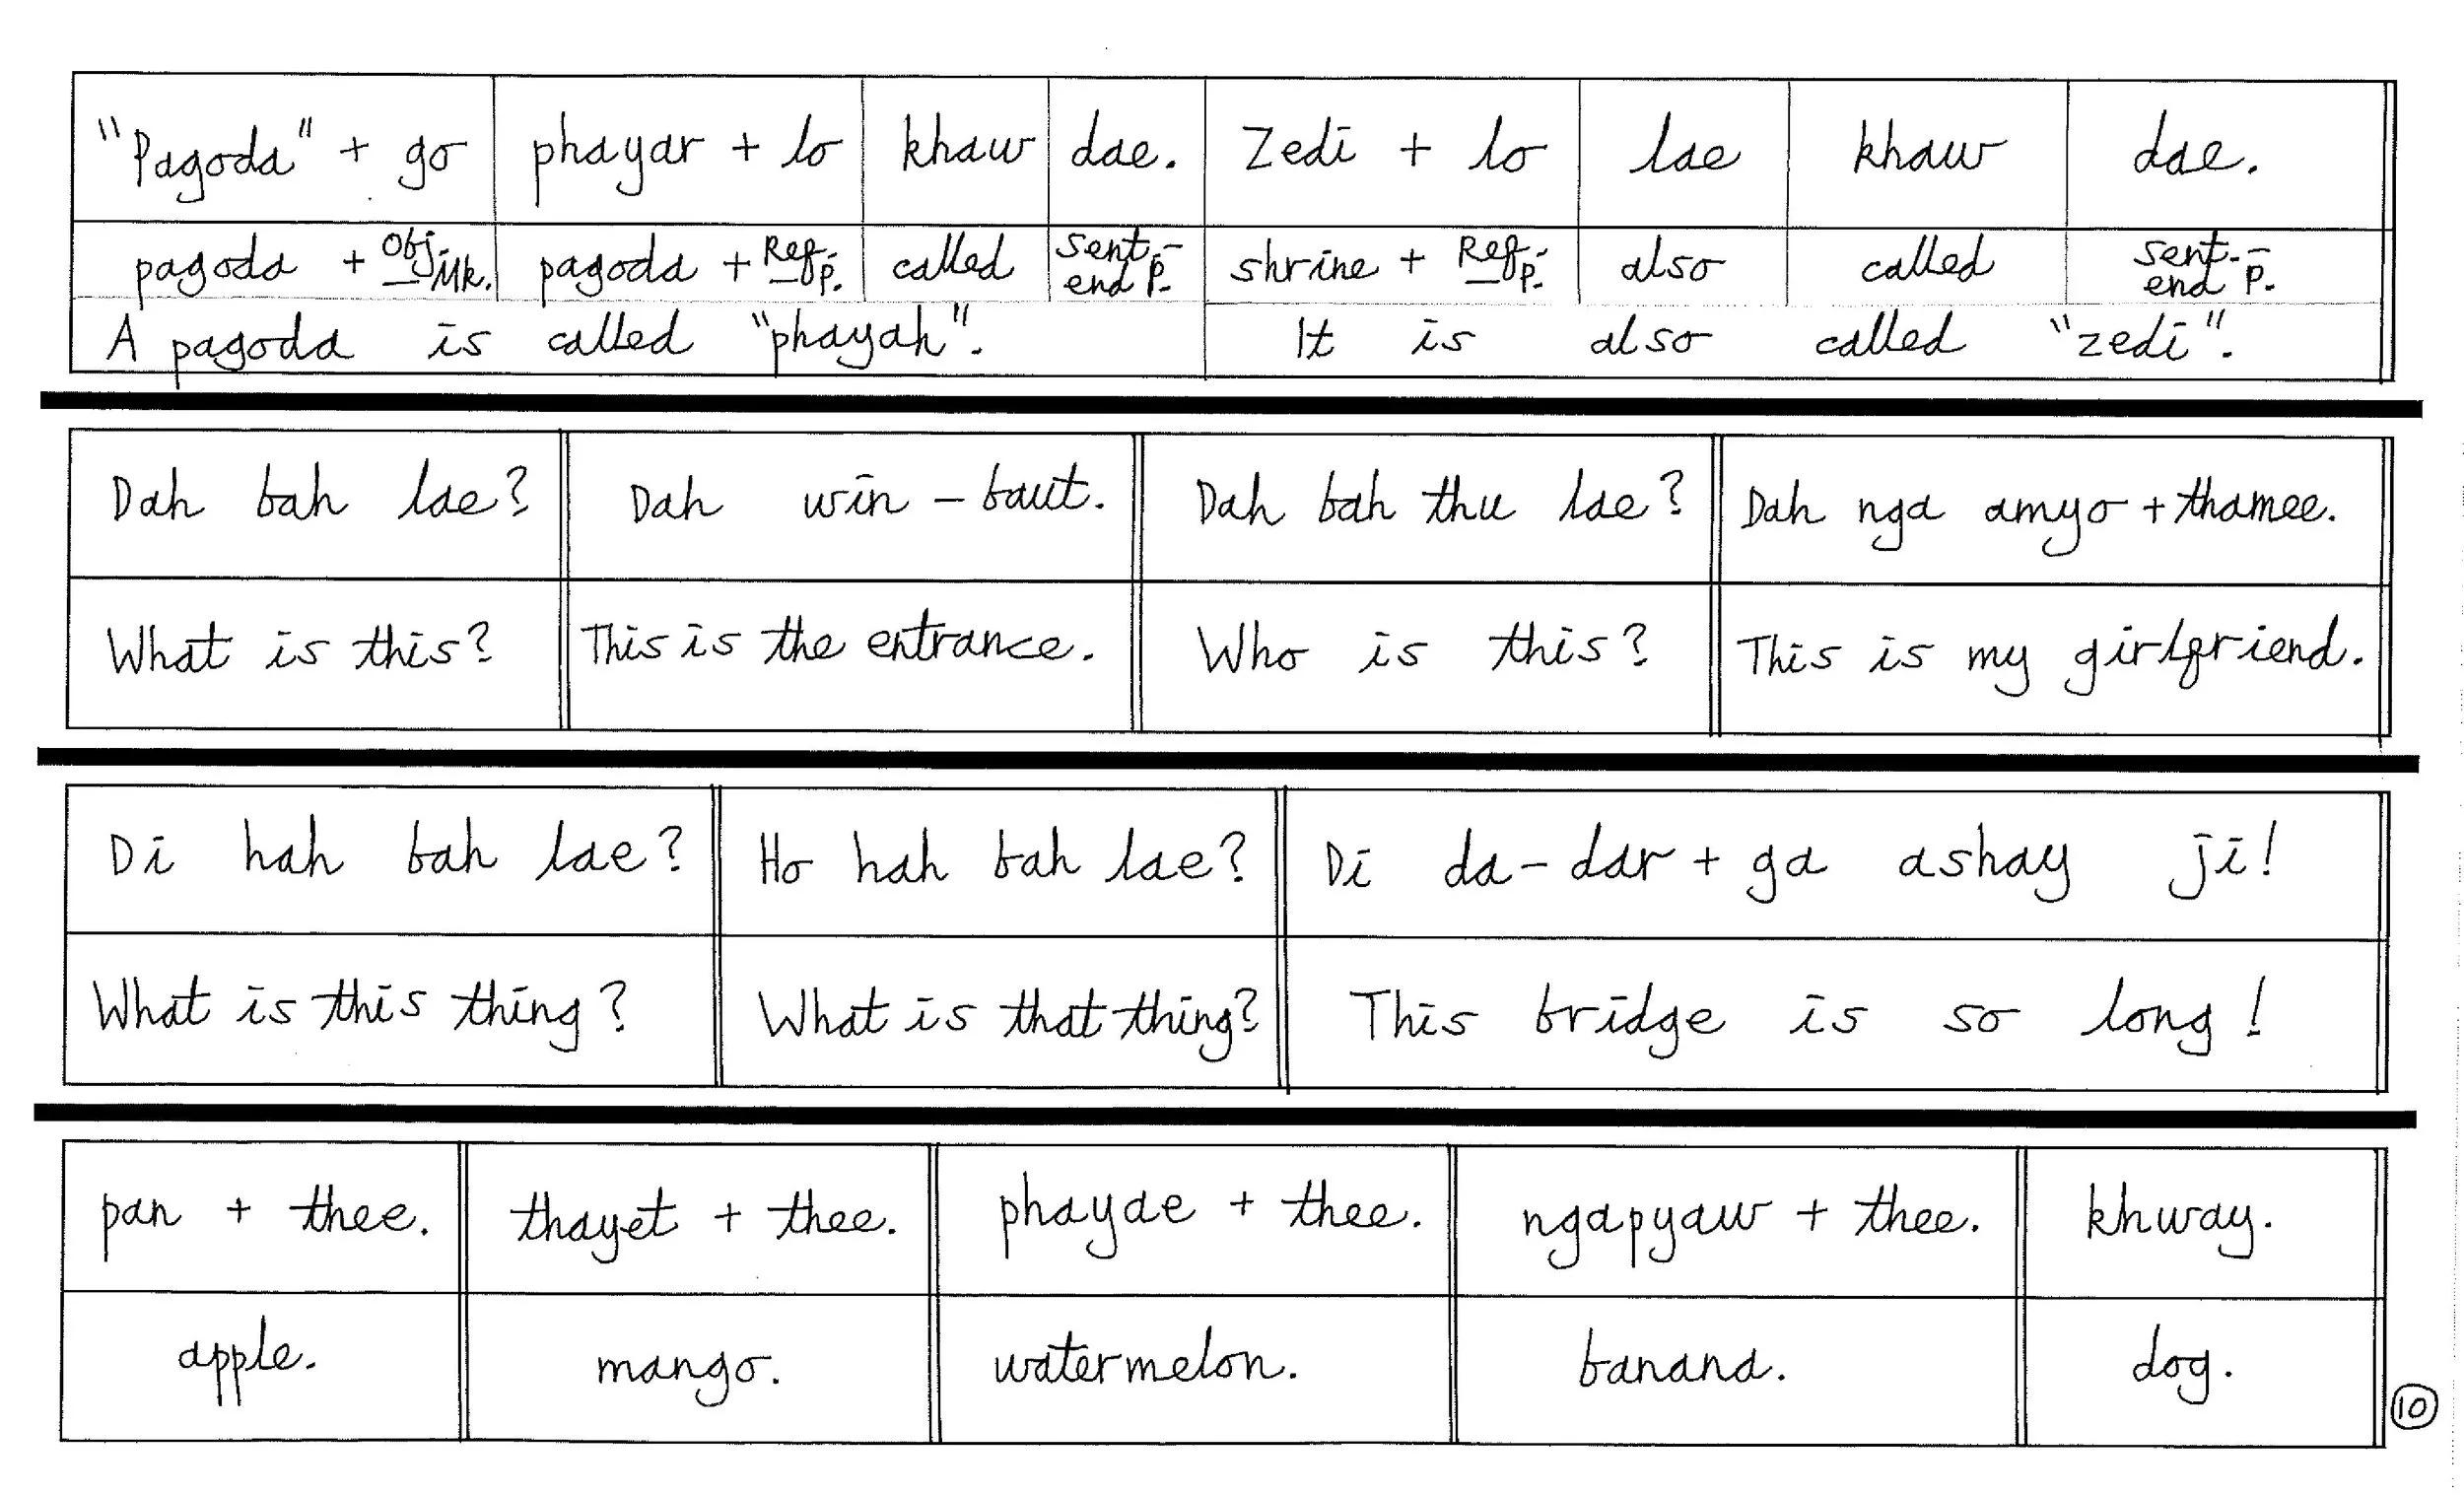 "Pagoda" + go phayar + lo khaw dae. Zedi + lo lae khaw dae.
pagoda + Obj. Mk. pagoda + Ref. p. called sent.- end p. shrine + Ref. p. also called sent.- end p.
A pagoda is called "phayah". It is also called "zedi".
Dah bah lae? Dah win - baut. Dah bah thu lae? Dah nga amyo + thamee.
What is this? This is the entrance. Who is this? This is my girlfriend.
Di hah bah lae? Ho hah bah lae? Di da - dar + ga ashay ji!
What is this thing? What is that thing? This bridge is so long!
pan + thee. thayet + thee. phayae + thee. ngapyaw + thee. khway.
apple. mango. watermelon. banana. dog.
10